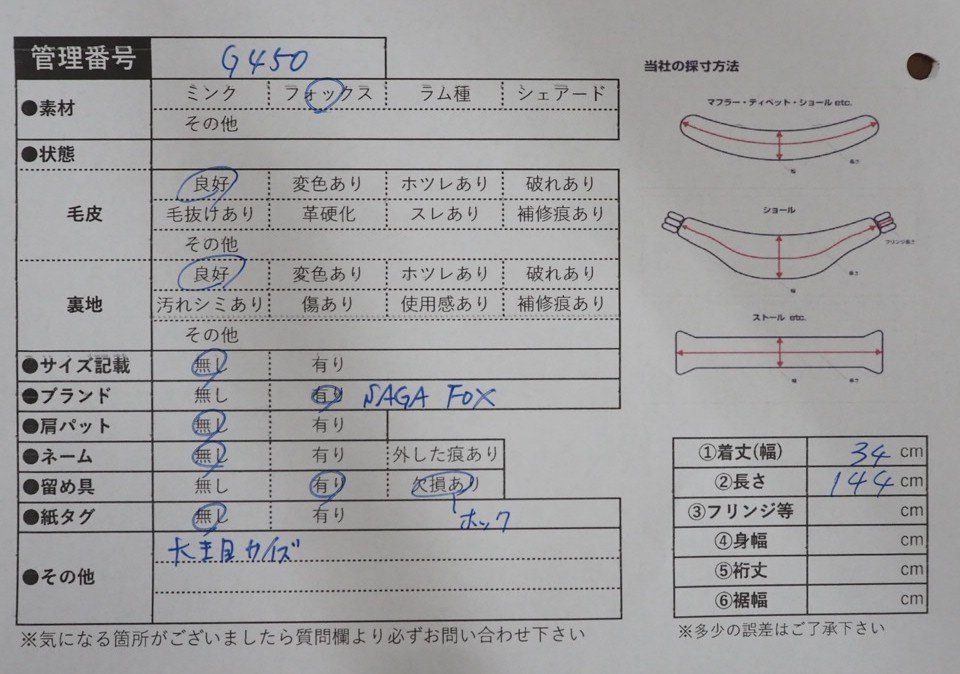 管理番号 G450
●素材 ミンク フォックス ラム種 シェアード
その他
●状態
毛皮 良好 変色あり ホツレあり 破れあり
毛抜けあり 革硬化 スレあり 補修痕あり
その他
裏地 良好 変色あり ホツレあり 破れあり
汚れシミあり 傷あり 使用感あり 補修痕あり
その他
●サイズ記載 無し 有り
●ブランド 無し 有り SAGA FOX
●肩パット 無し 有り
●ネーム 無し 有り 外した痕あり
●留め具 無し 有り 欠損あり
●紙タグ 無し 有り ホック
●その他 大きいサイズ
※気になる箇所がございましたら質問欄より必ずお問い合わせ下さい
当社の採寸方法
マフラー・ティペット・ショール etc.
長さ
幅
ショール
フリンジ長さ
長さ
幅
ストール etc.
長さ
幅
①着丈(幅) 34 cm
②長さ 144 cm
③フリンジ等 cm
④身幅 cm
⑤裄丈 cm
⑥裾幅 cm
※多少の誤差はご了承下さい